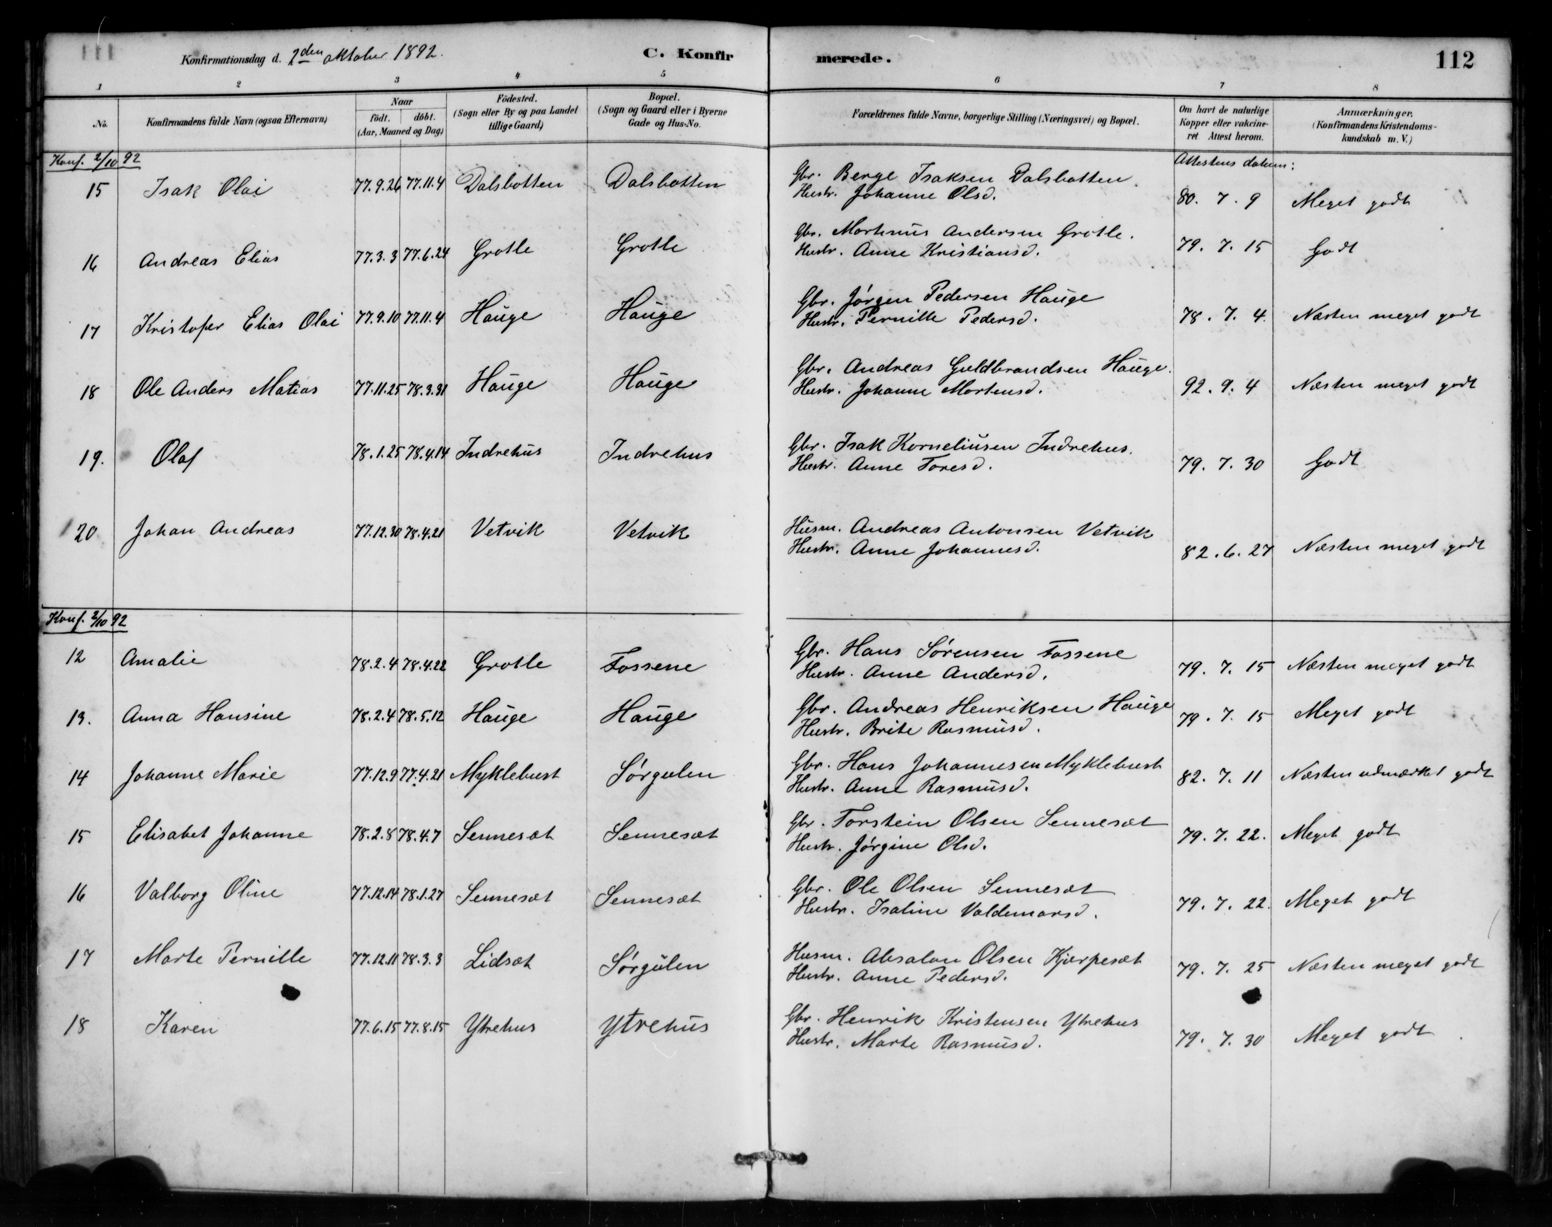 Konfirmationsdag d. 2den oktober 1892.
C. Konfirmerede.
112
1 2 3 4 5 6 7 8
No. Konfirmandens fulde Navn (ogsaa Efternavn) Naar født. døbt. (Aar, Maaned og Dag) Fødested. (Sogn eller By og paa Landet tillige Gaard) Bopæl. (Sogn og Gaard eller i Byerne Gade og Hus-No. Forældrenes fulde Navne, borgerlige Stilling (Næringsvei) og Bopæl. Om havt de naturlige Kopper eller vaccineret Attest herom. Anmærkninger. (Konfirmandens Kristendomskundskab m. V.)
Konf. 2/10 92
Attestens datum:
15 Isak Olai 77.9.26 77.11.4 Dalsbotten Dalsbotten Gbr. Berge Isaksen Dalsbotten.
Hustr. Johanne Olsd. 80. 7. 9 Meget godt
16 Andreas Elias 77.3.3 77.6.24 Grotle Grotle Gbr. Martinus Andersen Grotle.
Hustr. Anne Kristiansd. 79. 7. 15 Godt
17 Kristofer Elias Olai 77.9.10 77.11.4 Hauge Hauge Gbr. Jørgen Pedersen Hauge
Hustr. Pernille Pedersd. 78. 7. 4. Næsten meget godt
18 Ole Anders Matias 77.11.25 78.3.31 Hauge Hauge Gbr. Andreas Guldbrandsen Hauge.
Hustr. Johanne Mortensd. 92. 9. 4 Næsten meget godt
19. Olaf 78.1.25 78.4.14 Indrehus Indrehus Gbr. Isak Korneliusen Indrehus.
Hustr. Anne Toresd. 79. 7. 30 Godt
20 Johan Andreas 77.12.30 78.4.21 Vetvik Vetvik Husm. Andreas Antonsen Vetvik
Hustr. Anne Johannesd. 82. 6. 27 Næsten meget godt
Konf. 2/10 92
12 Amalie 78.2.4 78.4.22 Grotle Fossene Gbr. Hans Sørensen Fossene
Hustr. Anne Andersd. 79. 7. 15 Næsten meget godt
13. Anna Hansine 78.2.4 78.5.12 Hauge Hauge Gbr. Andreas Henriksen Hauge
Hustr. Brite Rasmusd. 79. 7. 15 Meget godt
14 Johanne Marie 77.12.9 77.4.21 Myklebust Sørgulen Gbr. Hans Johannesen Myklebust
Hustr. Anne Rasmusd. 82. 7. 11 Næsten udmærket godt
15 Elisabet Johanne 78.2.8 78.4.7 Sennesæt Sennesæt Gbr. Torstein Olsen Sennesæt
Hustr. Jørgine Olsd. 79. 7. 22. Meget godt
16 Valborg Oline 77.12.14 78.1.27 Sennesæt Sennesæt Gbr. Ole Olsen Sennesæt
Hustr. Isaline Valdemarsd. 79. 7. 22. Meget godt
17 Marte Pernille 77.12.11 78.3.3 Lidsæt Sørgulen Husm. Absalon Olsen Kjerpesæt
Hustr. Anne Pedersd. 79. 7. 25 Næsten meget godt
18 Karen 77.6.15 77.8.15 Ytrehus Ytrehus Gbr. Henrik Kristensen Ytrehus
Hustr. Marte Rasmusd. 79. 7. 30 Meget godt